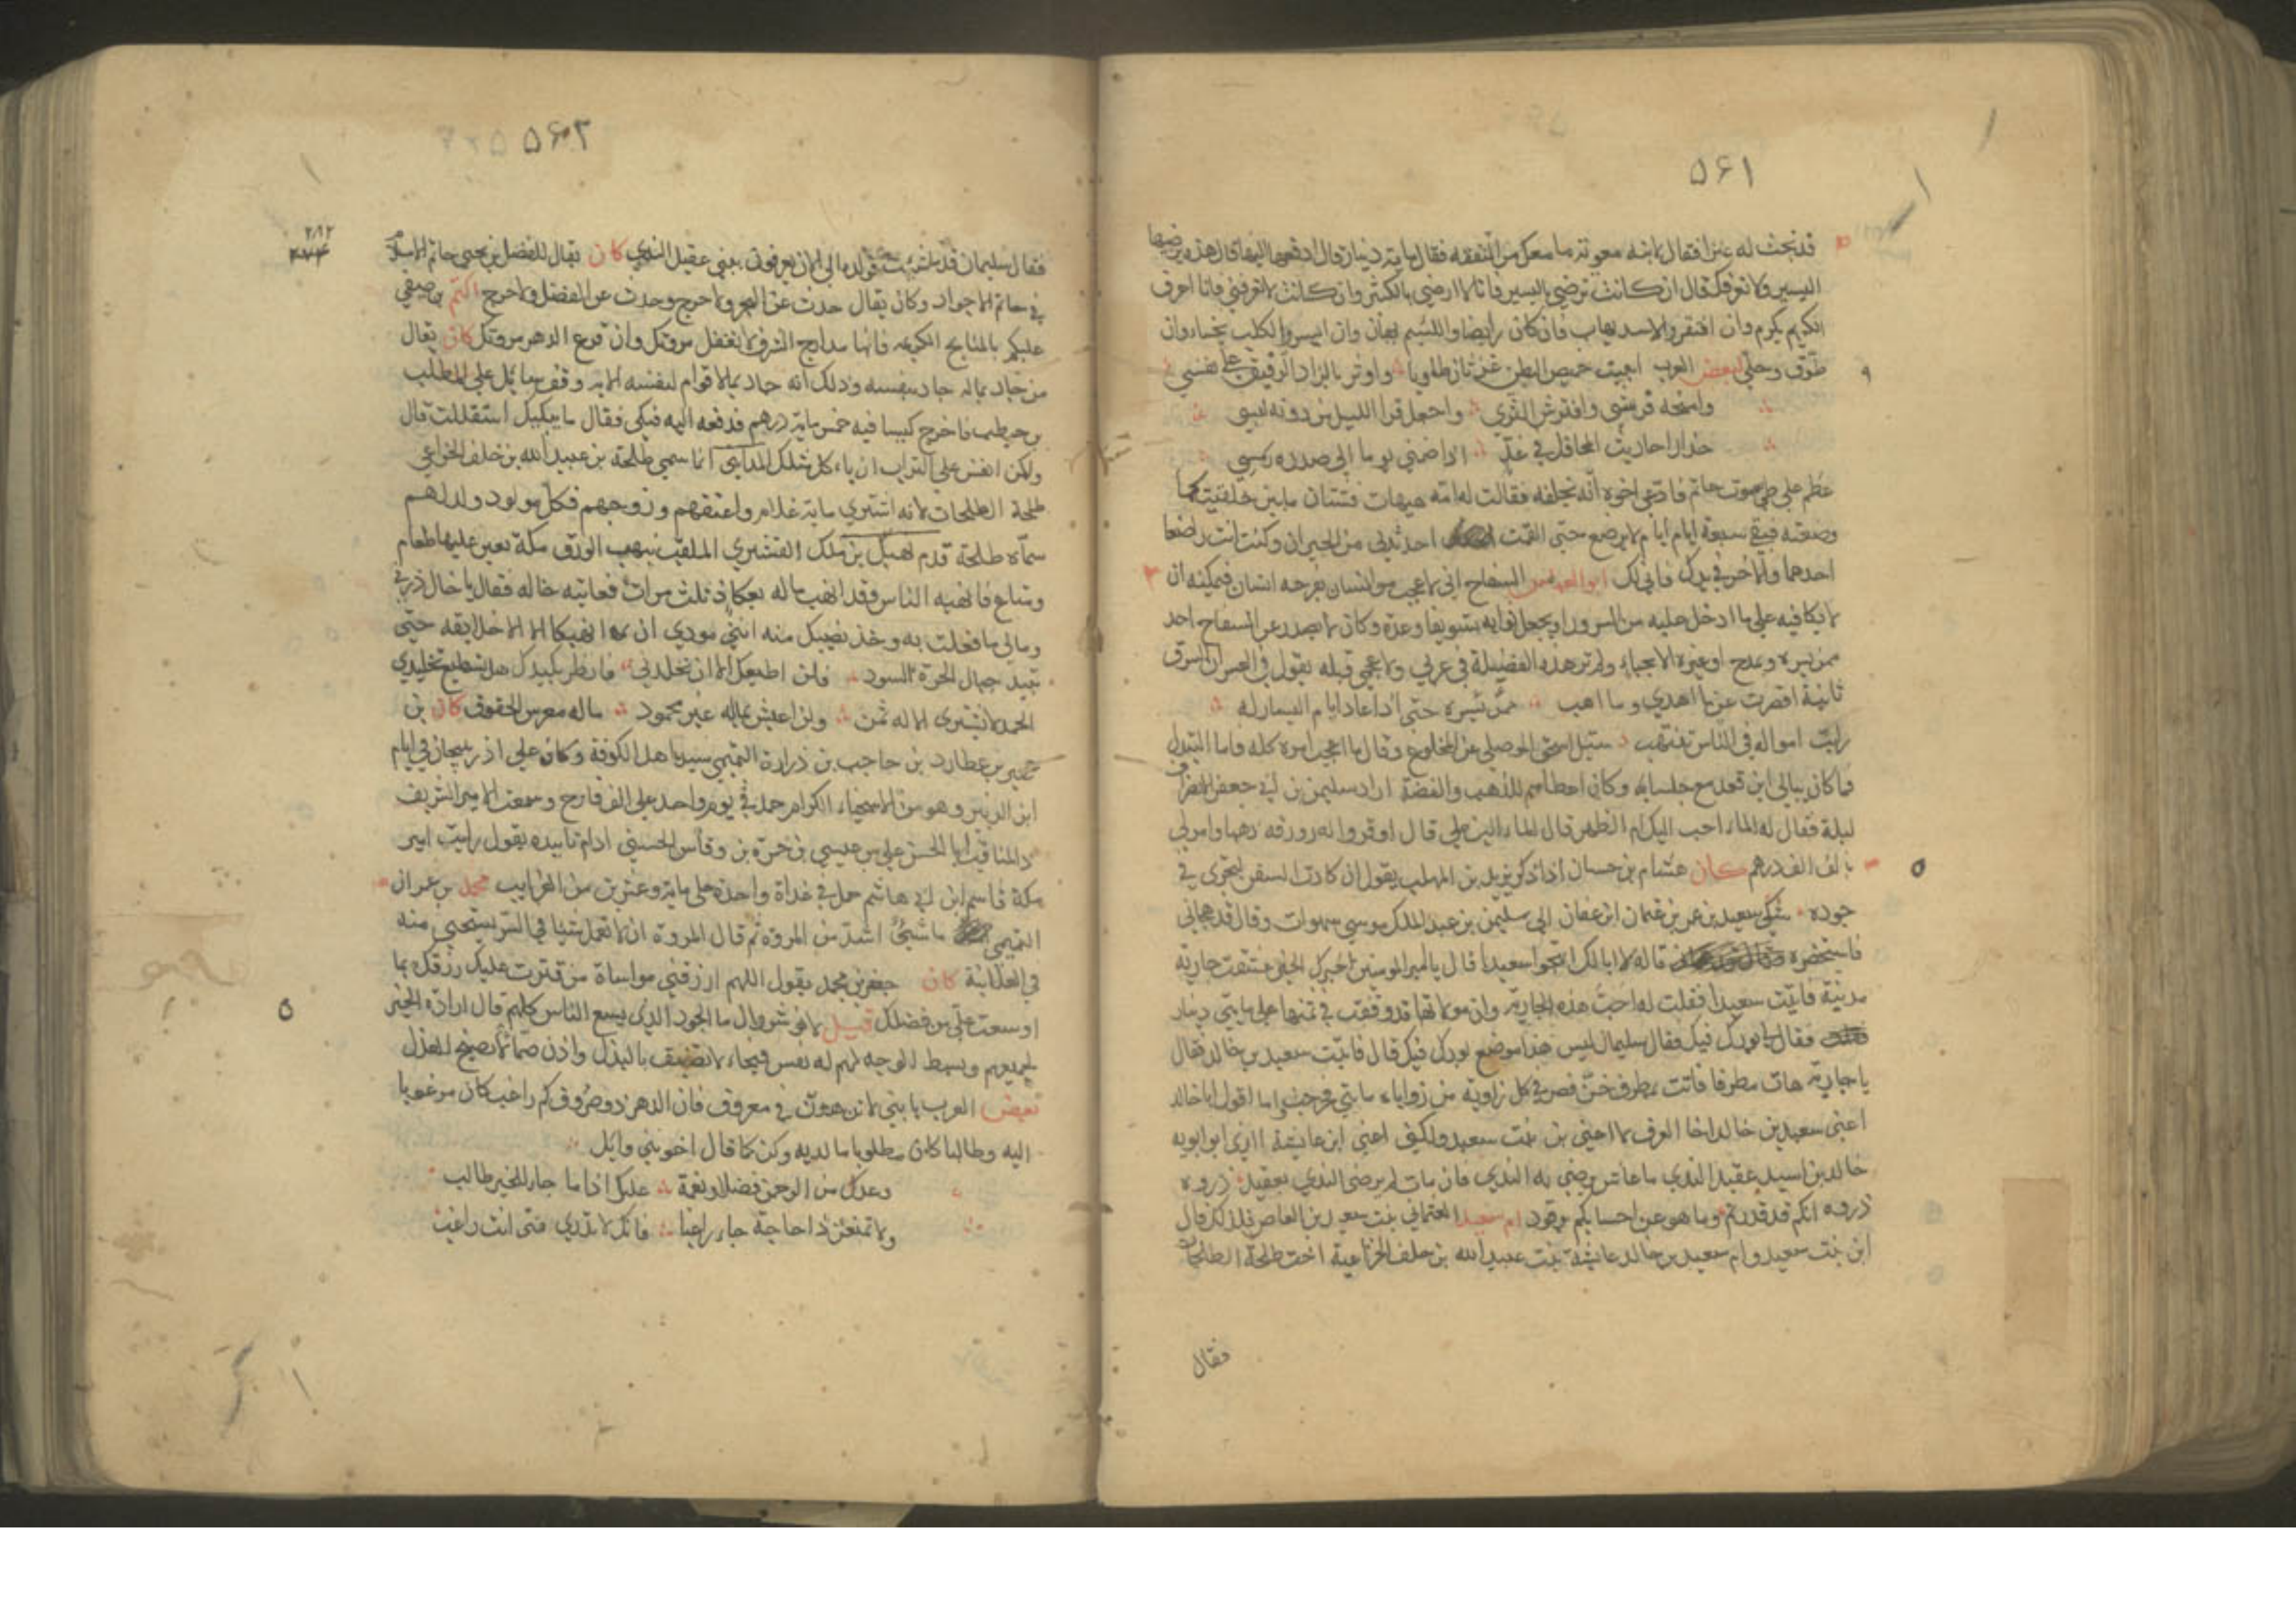 ۵۶۱
قد نجث له عنزا فقال لابنه معونة ما معك من النفقه فقال ماية دينار قال ادفعها اليها قال هذه يرضيها
اليسير ولا تعرفك قال ان كانت ترضي باليسير فانا لا ارضي بالكثير وان كانت لا تعرفني فانا اعرف
الكريم يكرم وان افتقر والاسد يهاب فان كان رابضا واللئيم يهان وان ايسر والكلب يخسا وان
طوق وحلي لبعض العرب ابيت خميص البطن غرثان طاويا واوثر بالزاد الرفيق علي نفسي
وامنحه فرشي وافترش الثري واجعل قر الليل من دونه لبسي
حذار احاديث المحافل في غد اذا ضمني يوما الي صدره رمسي
عظم علي طي موت حاتم فادعي اخوه انه يخلفه فقالت له امه هيهات فشتان ما بين خلقتيكما
وضعته فبقي سبعة ايام لا يرضع حتي القمت احد ثديي من الجيران وكنت انت راضعا
احدهما والاخر في يدك فاني لك ابو العباس السفاح اني لاعجب من انسان يفرحه انسان فيمكنه ان
لا يكافيه علي ما ادخل عليه من السرور او يجعل ثوابه تسويفا وعدة وكان لا يصدر عن السفاح احد
ممن يسره ويمدح او غيره الا بحباء ولم تر هذه الفضيلة في عربي ولا عجمي قبله يقول في العسر ان ايسرت
ثانية اقصرت عن ما اهدي وما اهب حتي اذا عاد ايام اليسار له
رايت امواله في الناس تنتهب سئل اسحق الموصلي عن المخلوع وقال ما اعجب امره كله فاما التبذل
فما كان يبالي اين قعد مع جلسايه وكان اعطاهم للذهب والفضة اراد سليمن بن ابي جعفر
ليلة فقال له الماء احب اليك ام الظهر قال الماء الين علي قال اوقروا له زورقه ذهبا وامر لي
بالف الف درهم كان هشام بن حسان اذا ذكر يزيد بن المهلب يقول ان كادت السفن لتجري في
جوده شكي سعيد بن عمر بن عثمان ابن عفان الي سليمن بن عبد الملك موسي شهوات وقال قد هجاني
فاستحضره قاله لا ابا لك اتهجو سعيدا قال يا امير المومنين اخبرك الخبر عشقت جارية
مدينة فاتيت سعيدا فقلت له احب هذه الجارية وان مولاتها قد وقفت في ثمنها علي مايتي دينار
فقال لي بورك فيك فقال سليمان ليس هذا موضع بورك فيك قال فاتيت سعيد بن خالد فقال
يا جارية هات مطرفا فاتت بمطرف خز فصر في كل زاوية من زواياه مايتي فخرجت وانا اقول ابا خالد
اعني سعيد بن خالد اخا العرف لا اعني بن بنت سعيد ولكني اعني ابن عايشة الذي ابو ابويه
خالد بن اسيد عقيد الندي ما عاش يرضي به الندي فان مات لم يرض الندي بعقيد ذروه
ذروه انكم قد قدرتم وما هو عن احسابكم برقود ام سعيد العثماني بنت سعيد بن العاص فلذلك قال
ابن بنت سعيد وام سعيد بن خالد عايشة بنت عبيد الله بن خلف الخزاعية اخت طلحة الطلحات
فقال
۵۶۲
فقال سليمان قد قوله الي الان يعرفون يعني عقيد الندي كان يقال للفضل بن يحيي حاتم الاسلام
في حاتم الاجواد وكان يقال حدث عن البحر ولا حرج وحدث عن الفضل ولا حرج اكثم بن صيفي
عليكم بالمناكح الكريمه فانها مدارج الشرف لا تغفل مروتك وان قرع الدهر مروتك كان يقال
من جاد بماله جاد بنفسه وذلك انه جاد بما لا قوام لنفسه الا به وقف سايل علي المطلب
بن حنطب فاخرج كيسا فيه خمس ماية درهم فدفعه اليه فبكي فقال ما يبكيك استقللت قال
ولكن انفس علي التراب ان ياكل مثلك المدايني انما سمي طلحة بن عبيد الله بن خلف الخزاعي
طلحة الطلحات لانه اشتري ماية غلام واعتقهم وزوجهم فكل مولود ولد لهم
سماه طلحة قدم نهيك بن ملك القشيري الملقب بنهب الورق مكة بعير عليها طعام
ومتاع فانهبه الناس وقد انهب ماله بعكاظ ثلث مرات فعاتبه خاله فقال يا خال ذرني
ومالي ما فعلت به وخذ نصيبك منه انني مودي ان نهيكا الا خلايقه حتي
تبيد جبال الحرة السود ولن اطيعك الا ان تخلدني فانظر بكيدك هل تستطيع تخليدي
الحمد لا يشتري الا له ثمن ولن اعيش بمال غير محمود ماله معرس الحقوق كان بن
عمير بن عطارد بن حاجب بن زرارة التميمي سيد اهل الكوفة وكان علي اذربيجان في ايام
ابن الزبير وهو من الاسخياء الكرام حمل في يوم واحد علي الف فارس وسمعت الامير الشريف
ذا المناقب ابا الحسن علي بن عيسي بن حمزة بن وهاس الحسيني ادام تاييده يقول رايت امير
مكة قاسم ابن ابي هاشم حمل في غداة واحدة علي ماية وعشرين من العرابيب محمد بن عمران
التيمي ما شيئ اشد من المروة ثم قال المروة ان لا تعمل شيئا في السر يستحيي منه
في العلانية كان جعفر بن محمد يقول اللهم ارزقني مواساة من قترت عليه رزقك بما
اوسعت علي من فضلك قيل لانوشروان ما الجود الذي يسع الناس كلهم قال ارادة الخير
لجميعهم وبسط الوجه لهم له نفس فيحاء لا تضيق بالبذل واذن صماء لا تصيخ للعذل
بعض العرب يا بني لا تزهدن في معروف فان الدهر ذو صروف كم راغب كان مرغوبا
اليه وطالبا كان مطلوبا ما لديه وكن كما قال اخو بني وايل
وعد من الرحمن فضلا ونعمة عليك اذا ما جاء للخير طالب
ولا تمنعن ذا حاجة جاء راغبا فانك لا تدري متي انت راغب